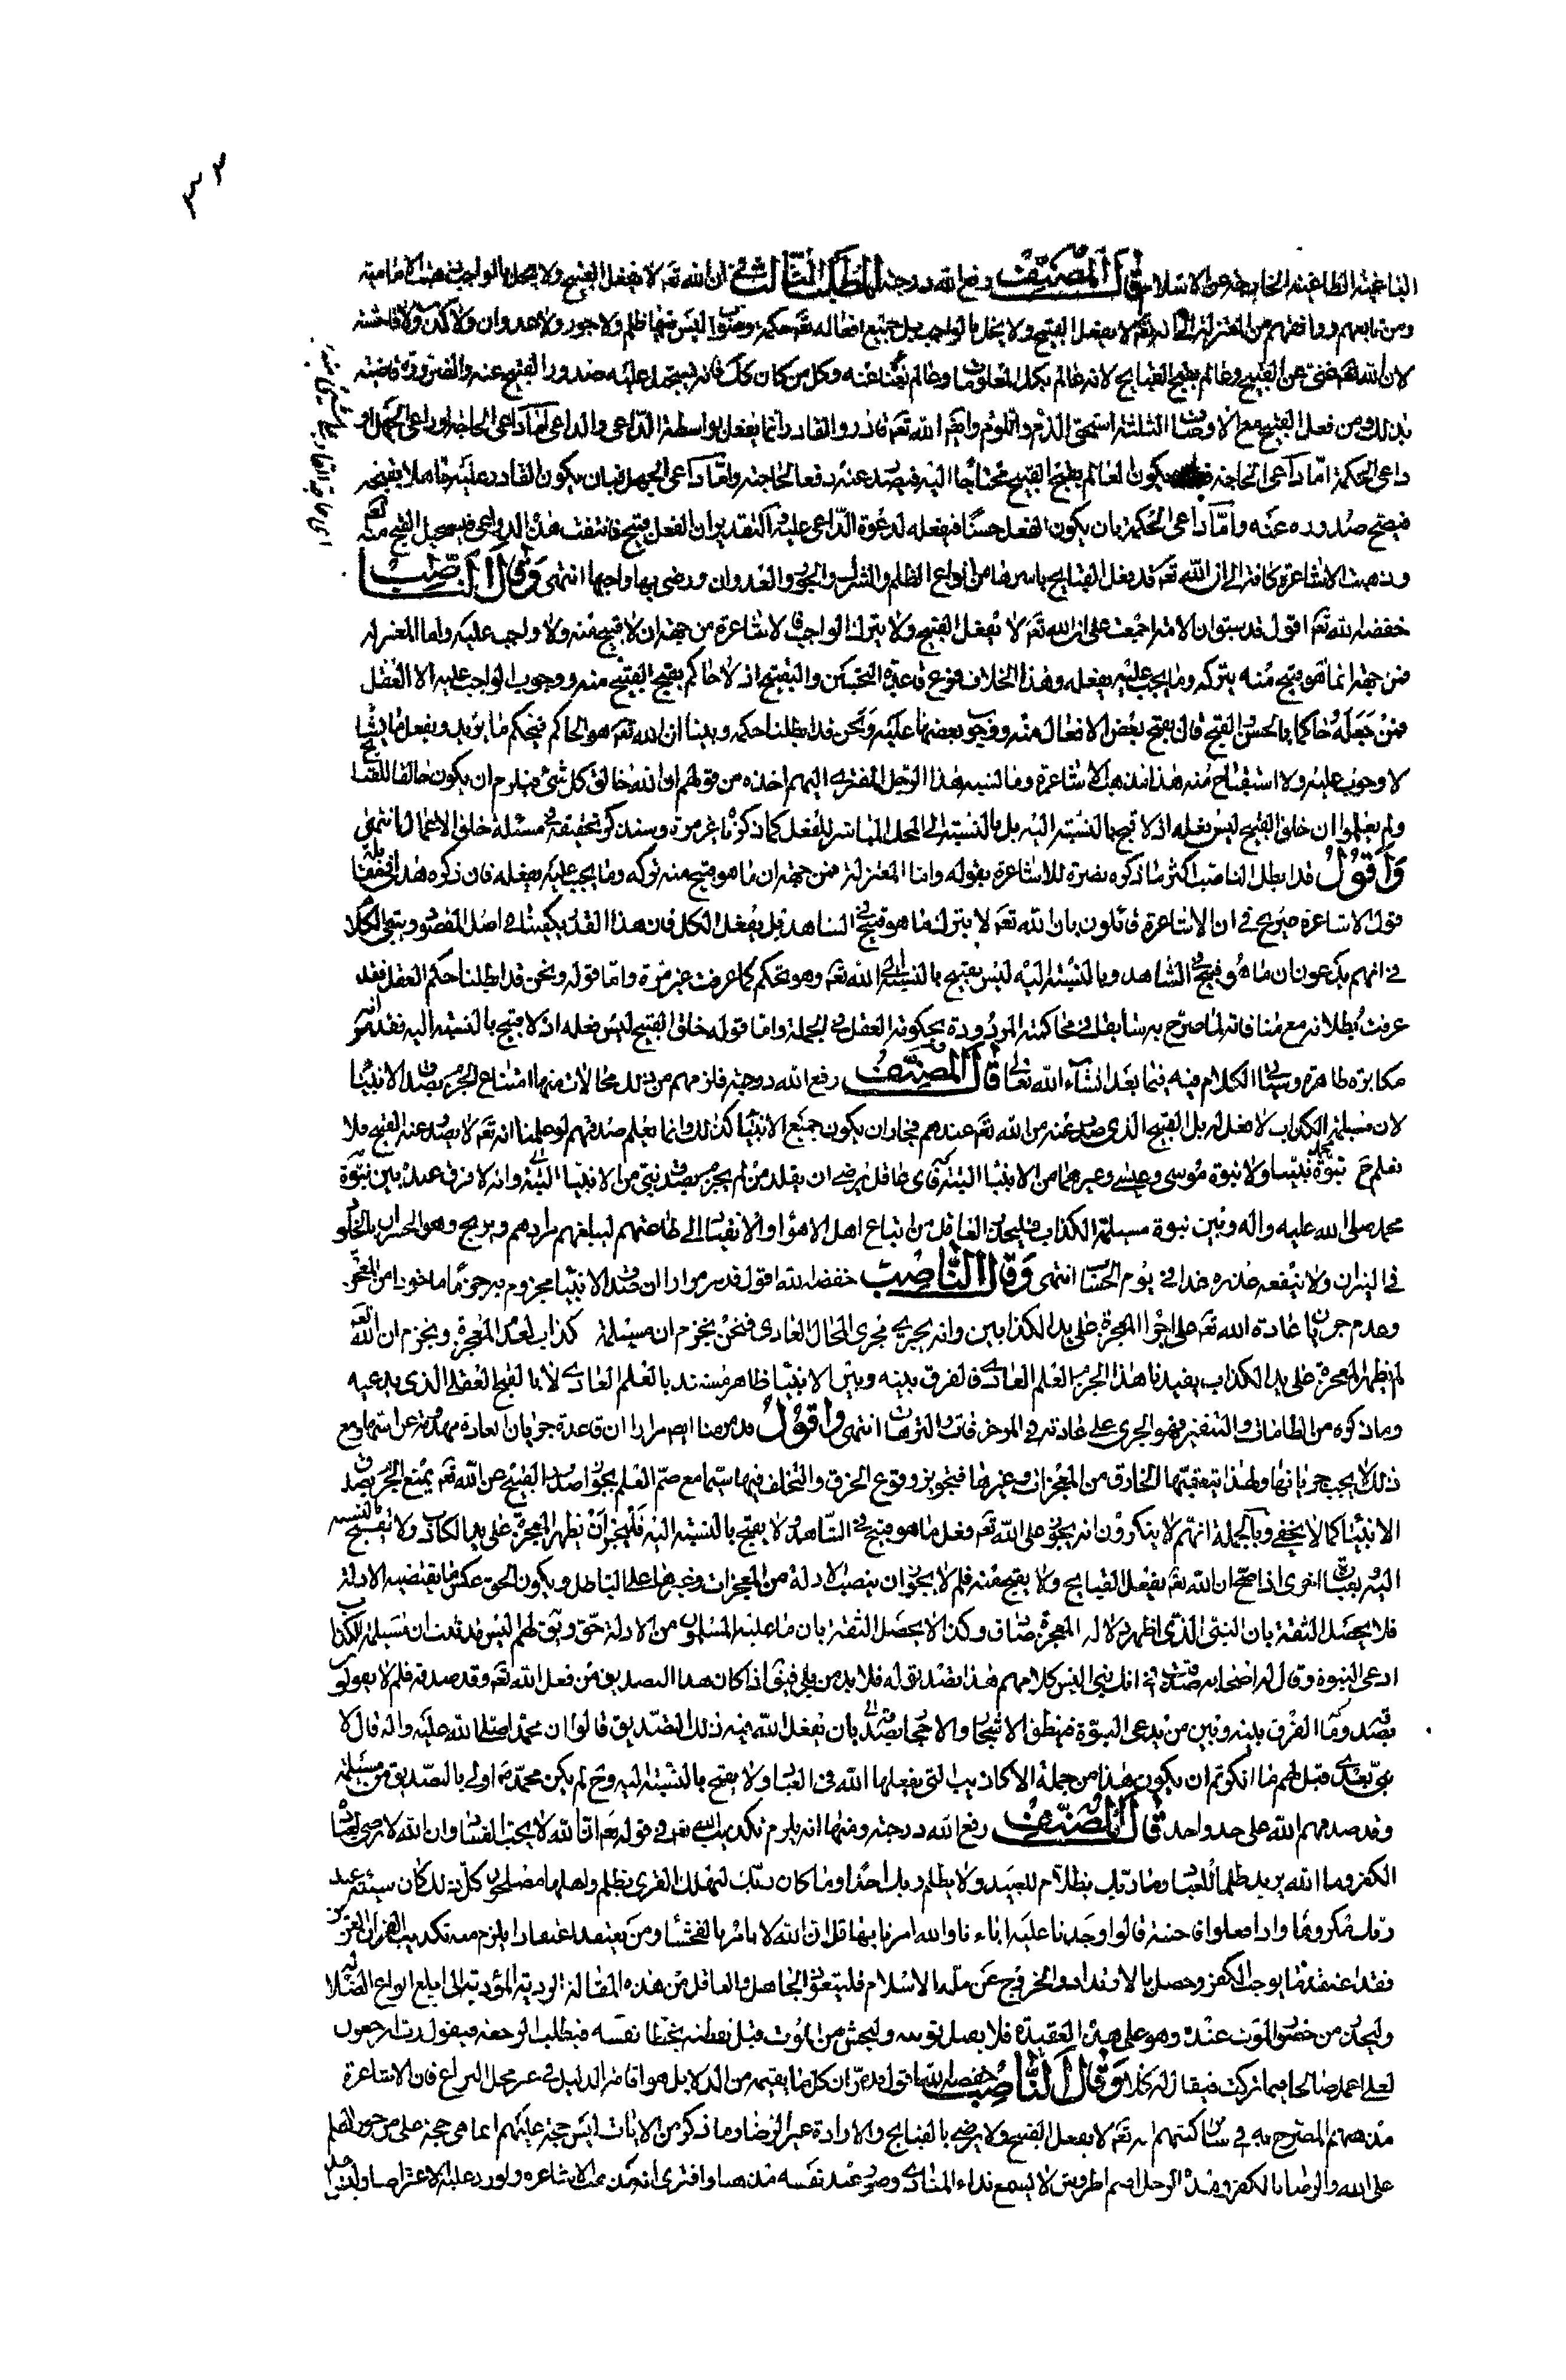 ٣٣
الباغية الطاغية الخارجة عن الاسلام قال المصنف رفع الله درجته المطلب الثالث في ان الله تعه لا يفعل القبيح ولا يخل بالواجب ذهبت الامامية
ومن تابعهم ووافقهم من المعتزلة الى انه تعه لا يفعل القبيح ولا يخل بالواجب بل جميع افعاله تعه حكمة وصواب ليس فيها ظلم ولا جور ولا عدوان ولا كذب ولا فاحشة
لان الله تعه غنى عن القبيح وعالم بقبح القبايح لانه عالم بكل المعلومات وعالم بغناه عنه وكل من كان كك فانه يستحيل عليه صدور القبيح عنه والضرورة قاضية
بذلك ومن فعل القبيح مع الاوصاف الثلثة استحق الذم واللوم وايضه الله تعه قادر والقادر انما يفعل بواسطة الداعى والداعى اما داعى الحاجة او داعى الجهل او
داعى الحكمة اما داعى الحاجة فقد يكون العالم بقبح القبيح محتاجا اليه فيصدر عنه دفعا لحاجته واما داعى الجهل فبان يكون القادر عليه جاهلا بقبحه
فيصح صدوره عنه واما داعى الحكمة بان يكون الفعل حسنا فيفعله لدعوة الداعى عليه والتقدير ان الفعل قبيح فانتفت هذه الدواعى فيستحيل القبيح منه تعه
وذهبت الاشاعرة كافة الى ان الله تعه قد فعل القبايح باسرها من انواع الظلم والشرك والجور والعدوان ورضى بها واحبها انتهى وقال الناصب
خفضه الله تعه اقول قد سبق ان الامة اجمعت على ان الله تعه لا يفعل القبيح ولا يترك الواجب فالاشاعرة من جهة ان لا قبيح منه ولا واجب عليه واما المعتزلة
فمن جهة انما هو قبيح منه يتركه وما يجب عليه يفعله وهذا الخلاف فرع قاعدة التحسين والتقبيح اذ لا حاكم بقبح القبيح منه ووجوب الواجب عليه الا العقل
فمن جعله حاكما بالحسن والقبح قال بقبح بعض الافعال منه ووجوب بعضها عليه ونحن قد ابطلنا حكمه وبينا ان الله تعه هو الحاكم فيحكم ما يريد ويفعل ما يشاء
لا وجوب عليه ولا استقباح منه هذا مذهب الاشاعرة وما نسبه هذا الرجل المفترى اليهم اخذه من قولهم ان الله خالق كل شئ فيلزم ان يكون خالقا للقبايح
ولم يعلموا ان خلق القبيح ليس بفعله اذ لا قبيح بالنسبة اليه بل بالنسبة الى المحل المباشر للفعل كما ذكرناه غير مرة وسنذكر تحقيقه في مسئلة خلق الاعمال انتهى
واقول قد ابطل الناصب اكثر ما ذكره نصرة للاشاعرة بقوله واما المعتزلة فمن جهة ان ما هو قبيح منه يتركه وما يجب عليه يفعله فان ذكره هذا في مقابلة
قول الاشاعرة صريح في ان الاشاعرة قائلون بان الله تعه لا يترك ما هو قبيح في الشاهد بل يفعل الكل فان هذا القدر يكفينا في اصل المقصود ويبقى الكلام
في انهم يدعون ان ما هو قبيح في الشاهد وبالنسبة اليه ليس بقبيح بالنسبة الى الله تعه وهو تحكم كما عرفت غير مرة واما قوله ونحن قد ابطلنا حكم العقل فقد
عرفت بطلانه مع منافاته لما صرح به سابقا في محاكمته المردودة بحكومة العقل في الجملة واما قوله خلق القبيح ليس فعله اذ لا قبيح بالنسبة اليه فقد مر انه
مكابرة ظاهرة وسياتي الكلام فيه فيما بعد انشاء الله تعالى قال المصنف رفع الله درجته فلزمهم من ذلك محالات منها امتناع الجزم بصدق الانبياء
لان مسيلمة الكذاب لا فعل له بل القبيح الذى صدر عنه من الله تعه عندهم فجاز ان يكون جميع الانبياء كذلك وانما يعلم صدقهم لو علمنا انه تعه لا يصدر عنه القبيح فلا
نعلم ح نبوة محمد نبينا ولا نبوة موسى وعيسى وغيرهما من الانبياء البتة فاى عاقل يرضى ان يقلد من لم يجزم بصدق نبى من الانبياء البتة وانه لا فرق عنده بين نبوة
محمد صلى الله عليه واله وبين نبوة مسيلمة الكذاب فليحذر العاقل من اتباع اهل الاهواء والانقياد الى طاعتهم ليبلغهم مرادهم ويربح وهو الخسران بالخلود
في النيران ولا ينفعه عذره غدا في يوم الحساب انتهى وقال الناصب خفضه الله اقول قد مر مرارا ان صدق الانبياء مجزوم به جزما ماخوذا من المعجزة
وعدم جريان عادة الله تعه على اجراء المعجزة على يد الكذابين وانه يجرى مجرى المحال العادى فنحن نجزم ان مسيلمة كذاب لعدم المعجزة ونجزم ان الله تعه
لم يظهر المعجزة على يد الكذاب يفيدنا هذا الجزم العلم العادى فالفرق بينه وبين الانبياء ظاهر مستند بالعلم العادى لا بالقبح العقلى الذى يدعيه
وما ذكره من الطامات والتنفير فهو الجرى على عادته في المزخرفات والترهات انتهى واقول قد مر منا ايضه مرارا ان قاعدة جريان العادة مهدومة عن اسها ومع
ذلك لا يجب جريانها ولهذا يتعقبها الخارق من المعجزات وغيرها فيجوز وقوع الخرق والتخلف فيها سيما مع ضم العلم بجواز صدور القبيح عن الله تعه يمتنع الجزم بصدق
الانبياء كما لا يخفى وبالجملة انهم لا ينكرون انه يجوز على الله تعه فعل ما هو قبيح في الشاهد ولا يقبح بالنسبة اليه فليجز ان يظهر المعجزة على يد الكاذب ولا يقبح بالنسبة
اليه وبعبارة اخرى اذا صح ان الله تعه يفعل القبايح ولا يقبح منه فلم لا يجوز ان ينصب الادلة من المعجزات وغيرها على الباطل ويكون الحق عكس ما يقتضيه الادلة
فلا يحصل الثقة بان النبى الذى اظهر الله له المعجزة صادق وكذا لا يحصل الثقة بان ما عليه المسلمون من الادلة حق ويق لهم اليس قد ثبت ان مسيلمة الكذاب
ادعى النبوة وقال له اصحابه صدقت في انك نبى اليس كلامهم هذا تصديق له فلا بد من بلى فيق اذا كان هذا التصديق من فعل الله تعه وقد صدقه فلم لا يقولو
بصدقه وما الفرق بينه وبين من يدعى النبوة فينطق الاشجار والاحجار بصدقه بان يفعل الله فيه ذلك التصديق قالوا ان محمدا صلى الله عليه واله قال لا
نبى بعدى قيل لهم ما انكرتم ان يكون هذا من جملة الاكاذيب التى يفعلها الله في العباد ولا يقبح بالنسبة اليه وح لم يكن محمد صم اولى بالتصديق من مسيلمة
وقد صدقهم الله على حد واحد قال المصنف رفع الله درجته ومنها انه يلزم تكذيب الله تعه في قوله تعه ان الله لا يحب الفساد وان الله لا يرضى لعباده
الكفر وما الله يريد ظلما للعباد وما ربك بظلام للعبيد ولا يظلم ربك احدا وما كان ربك ليهلك القرى بظلم واهلها مصلحون كل ذلك كان سيئة عند
ربك مكروها واذا فعلوا فاحشة قالوا وجدنا عليه اباءنا والله امرنا بها قل ان الله لا يامر بالفحشاء ومن يعتقد اعتقادا يلزم منه تكذيب القران العزيز
فقد اعتقد ما يوجب الكفر وحصل بالارتداد والخروج عن ملة الاسلام فليتعوذ الجاهل والعاقل من هذه المقالة الردية المؤدية الى ابلغ انواع الضلالة
وليحذر من حضور الموت عنده وهو على هذه العقيدة فلا يقبل توبته وليخش من الموت قبل تفطنه بخطاء نفسه فيطلب الرجعة فيقول رب ارجعون
لعلى اعمل صالحا فيما تركت فيقال له كلا وقال الناصب خفضه الله اقول قد مر ان كل ما يقيمه من الدلايل هو اقامة الدليل في غير محل النزاع فان الاشاعرة
مذهبهم المصرح به في ساير كتبهم انه تعه لا يفعل القبيح ولا يرضى بالقبايح والارادة غير الرضا وما ذكر من الايات ليس حجة عليهم انما هى حجة على من جوز الظلم
على الله والرضا بالكفر وهذا الرجل اصم اطروش لا يسمع نداء المنادى وصور عند نفسه مذهبا وافترى انه مذهب الاشاعرة ويورد عليه الاعتراضات وليس